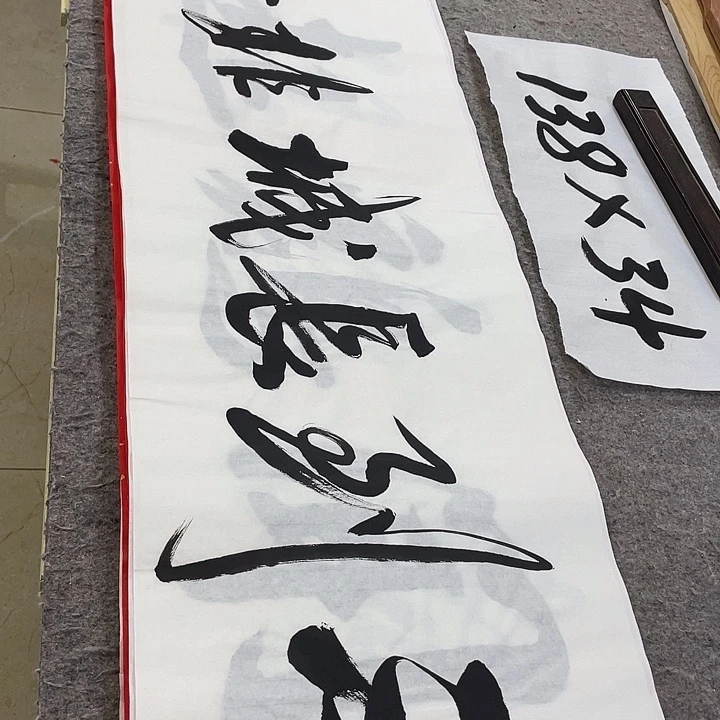 到長城非
138×34